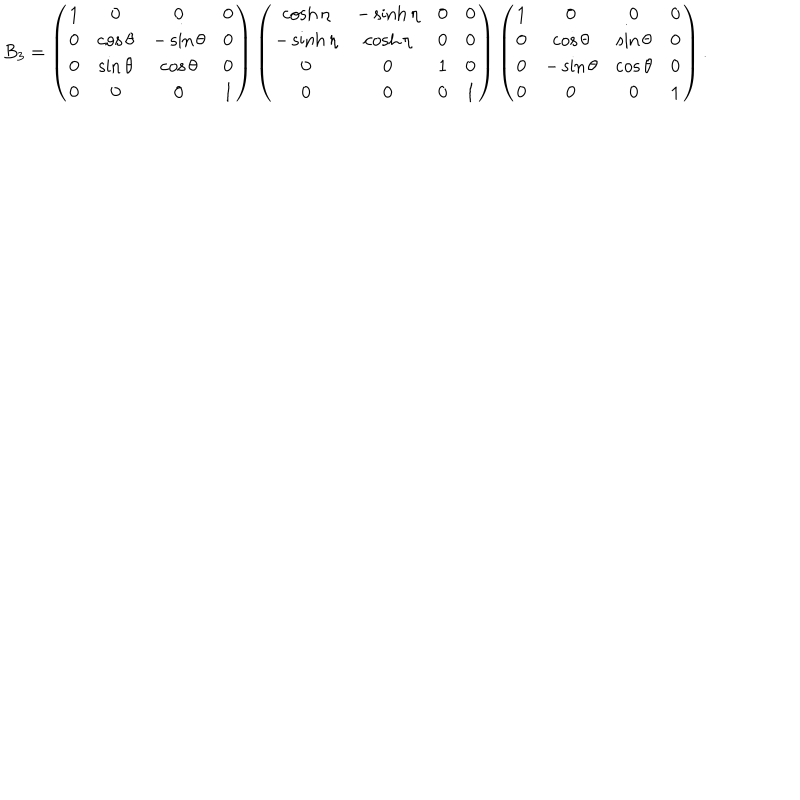 $B_3 = \begin{pmatrix} 1 & 0 & 0 & 0 \\ 0 & \cos\theta & -\sin\theta & 0 \\ 0 & \sin\theta & \cos\theta & 0 \\ 0 & 0 & 0 & 1 \end{pmatrix} \begin{pmatrix} \cosh\eta & -\sinh\eta & 0 & 0 \\ -\sinh\eta & \cosh\eta & 0 & 0 \\ 0 & 0 & 1 & 0 \\ 0 & 0 & 0 & 1 \end{pmatrix} \begin{pmatrix} 1 & 0 & 0 & 0 \\ 0 & \cos\theta & \sin\theta & 0 \\ 0 & -\sin\theta & \cos\theta & 0 \\ 0 & 0 & 0 & 1 \end{pmatrix}.$